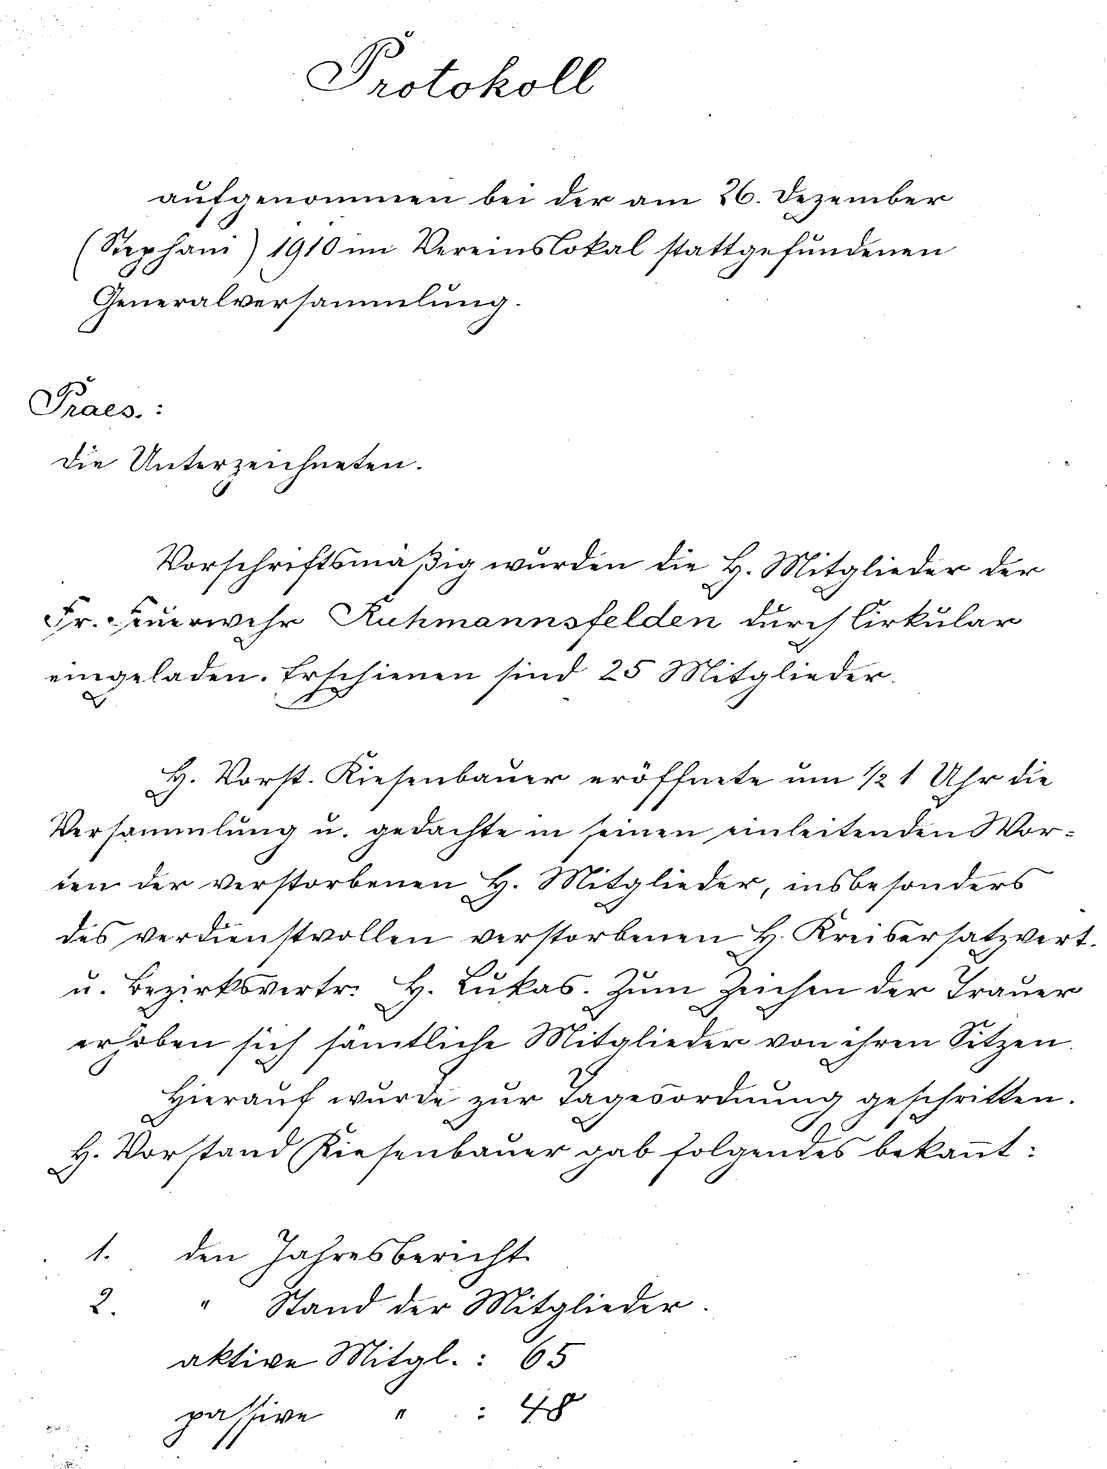 Protokoll
aufgenommen bei der am 26. Dezember
(Stephani) 1910 im Vereinslokal stattgefundenen
Generalversammlung.
Praes.:
die Unterzeichneten.
Vorschriftsmäßig wurden die H. Mitglieder der
Fr. Feuerwehr Ruhmannsfelden durch Cirkular
eingeladen. Erschienen sind 25 Mitglieder.
H. Vorst. Kiesenbauer eröffnete um ½ 1 Uhr die
Versammlung u. gedachte in seinen einleitenden Wor-
ten der verstorbenen H. Mitglieder, insbesonders
des verdienstvollen verstorbenen H. Kreisersatzvert.
u. Bezirksvertr. H. Lukas. Zum Zeichen der Trauer
erhoben sich sämtliche Mitglieder von ihren Sitzen.
Hierauf wurde zur Tagesordnung geschritten.
H. Vorstand Kiesenbauer gab folgendes bekan̄t:
1. den Jahresbericht
2. " Stand der Mitglieder.
aktive Mitgl.: 65
passive " : 48